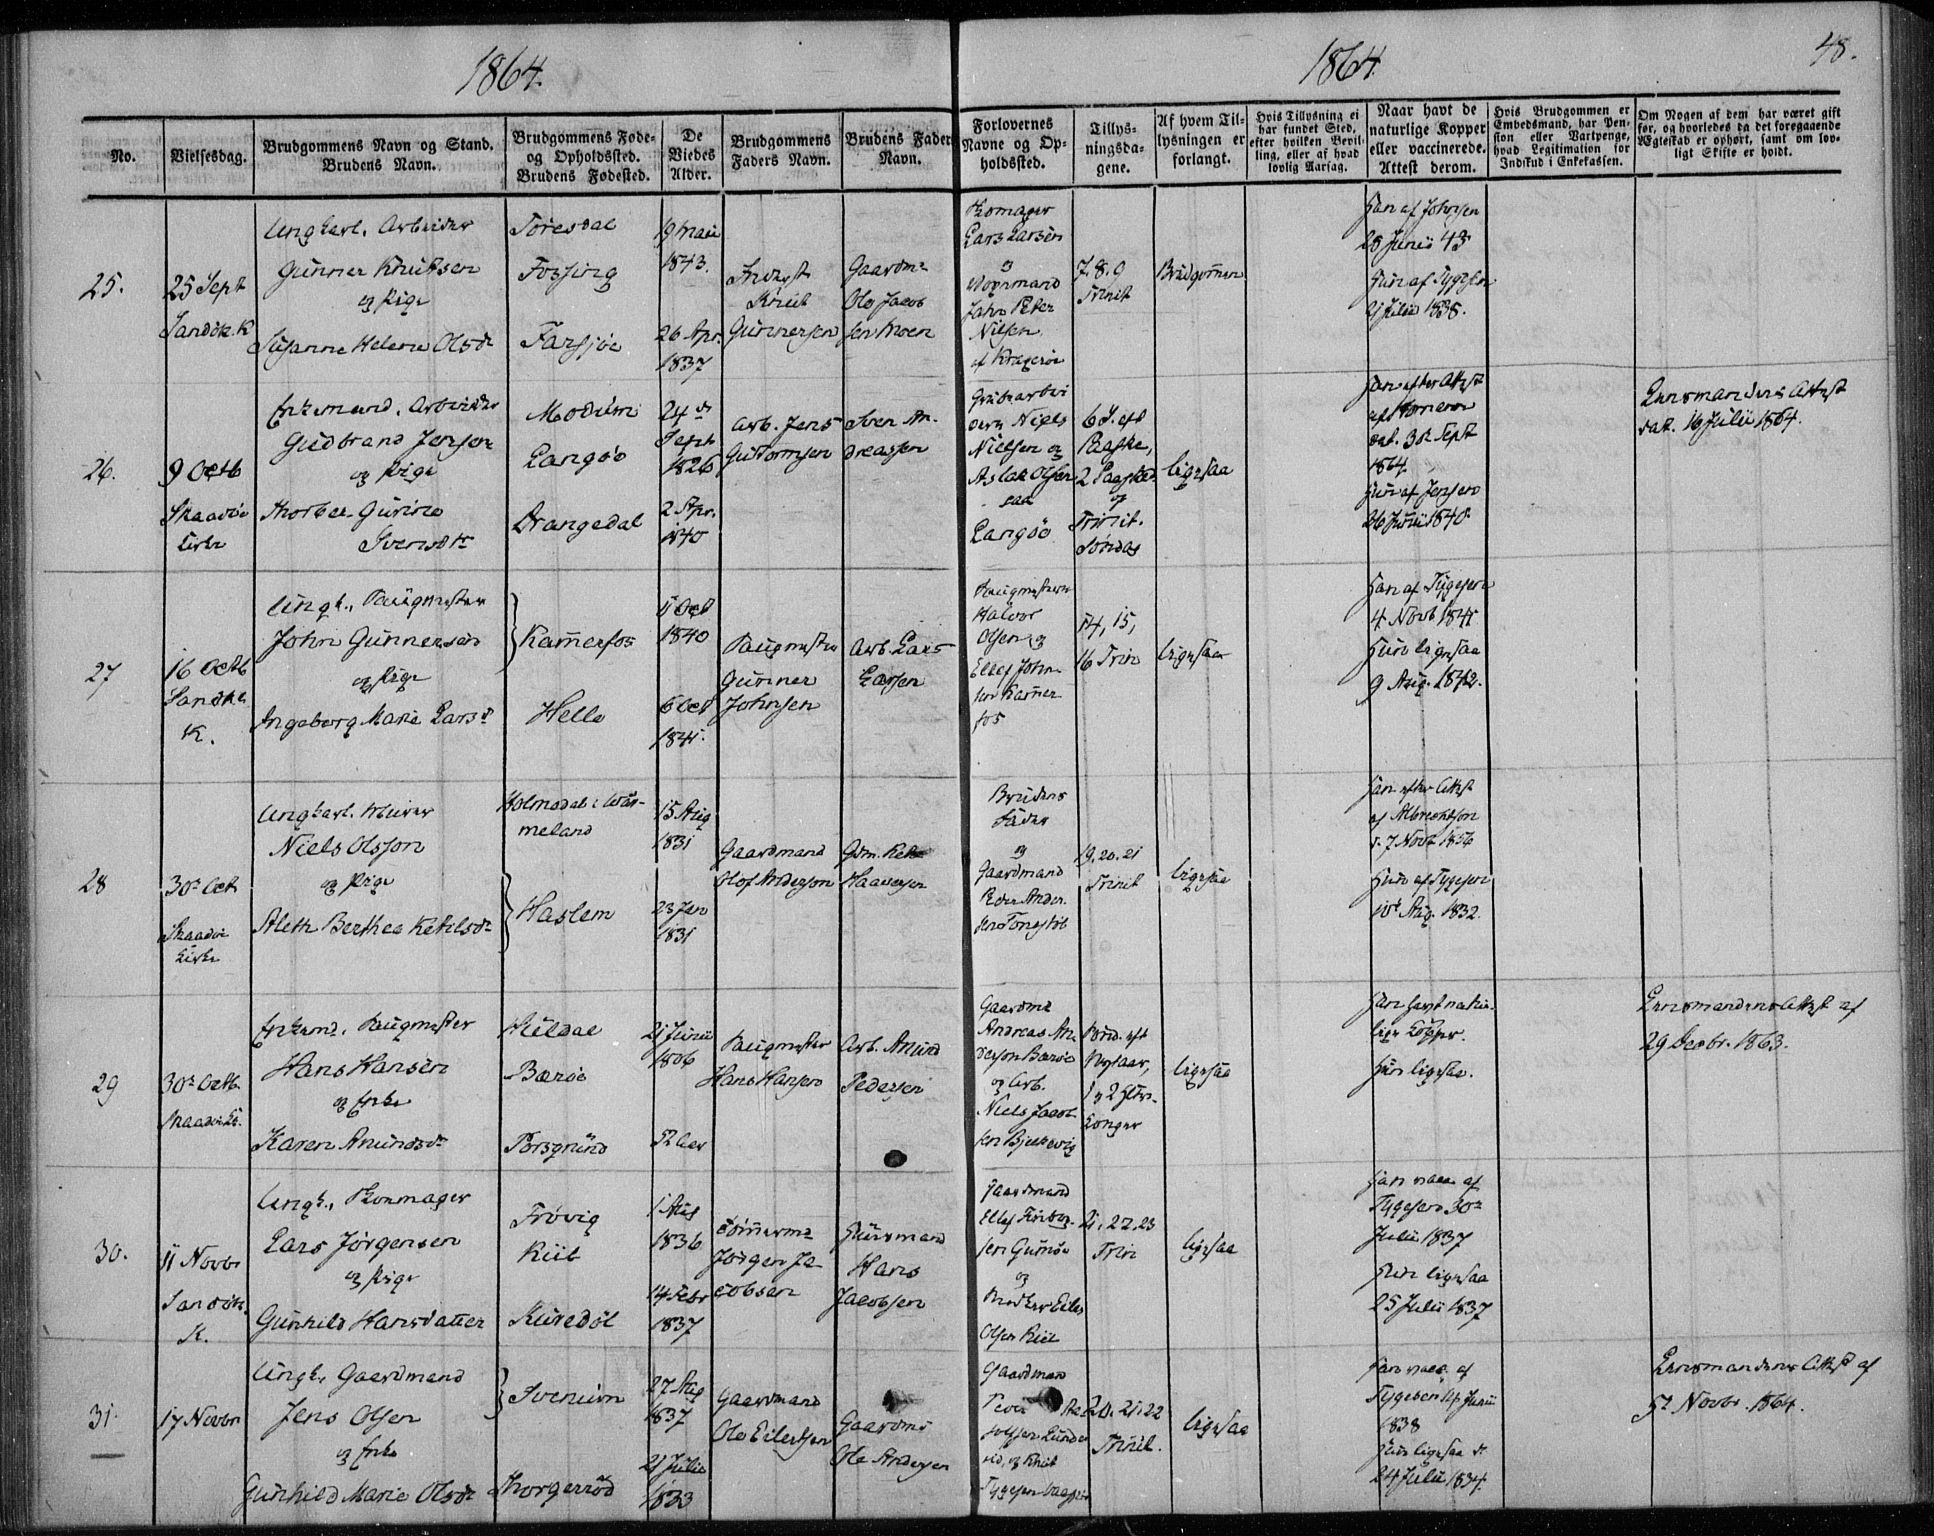 1864.
1864.
48.
No.
Vielsesdag.
Brudgommens Navn og Stand.
Brudens Navn.
Brudgommens Føde-
og Opholdssted.
Brudens Fødested.
De
Viedes
Alder.
Brudgommens
Faders Navn.
Brudens Faders
Navn.
Forlovernes
Navne og Op-
holdssted.
Tillys-
ningsda-
gene.
Af hvem Til-
lysningen er
forlangt.
Hvis Tillysning ei
har fundet Sted,
efter hvilken Bevil-
ling, eller af hvad
lovlig Aarsag.
Naar havt de
naturlige Kopper
eller vaccinerede.
Attest derom.
Hvis Brudgommen er
Embedsmand, har Pen-
sion eller Vartpenge,
hvad Legitimation for
Indskud i Enkekassen.
Om Nogen af dem har været gift
før, og hvorledes da det foregaaende
Ægteskab er ophørt, samt om lov-
ligt Skifte er holdt.
25.
25 Sept
Sandøk. K
Ungkarl. Arbeider
Gunner Knutsen
og Pige
Susanne Helene Olsdr
Toresdal
Fossing
Farsjøe
19 Mai
1843.
26 Apr.
1837
Inderst
Knut
Gunnersen
Gaardm.
Ole Jacob
sen Moen
Skomager
Lars Larsen
og
John Peter
Nilsen
af Kragerøe
7. 8. 9
Trinit
Brudgommen
Han af Johnsen
28 Juni 43
Hun af Tygesen
21 Julii 1838.
26.
9 Octb
Skaadøe
Kirke
Enkemand, Arbeider
Gudbrand Jensen
og Pige
Thorber Gurine
Svensdtr
Modum
Langøe
Drangedal
24 d
Sept
1826
2 Apr.
1840
Arb. Jens
Gutormsen
Sven An-
dreassen
Grubearbei
dern Niels
Nielsen og
Aslak Olsen
Langøe
6 S. eft
Paaske,
2 Paaske
og
Trinit.
Søndag
ligesaa
Han efter Attest
dat. 30 Sept
1864
Hun af Jensen
26 Juni 1840.
Lensmandens Attest
dat. 16 Julii 1864.
27
16 Octb
Sandøk.
K.
Ungk., Saugmester
John Gunnersen
og Pige
Ingeborg Marie Larsd
Kamerfos
Helle
11 Oct
1840
6 Oct
1841.
Saugmester
Gunner
Johnsen
Arb. Lars
Larsen
Saugmestern
Halvor
Olsen og
Ellef John-
sen Kamer
fos
14, 15,
16 Trin
ligesaa
Han af Tygesen
4 Novb 1841
Hun ligesaa
9 Aug. 1842.
28
30 Oct
Skaadøe
Kirke
Ungkarl. Murer
Niels Olsson
og Pige
Aleth Berthea Ketilsdr
Holmedal i Wär-
meland
Haslem
15 Aug
1831
23 Jan
1831
Gaardmand
Olof Anderson
Gdm. Ketil
Haaversen
Brudens
Fader
og
Gaardmand
Peder Ander-
sen Tonstøl
19. 20. 21
Trinit
ligesaa
Han efter Attest
af Albrechtson
d. 7 Novb 1856
Hun af Tygesen
10 Aug. 1832.
29
30 Octb.
Skaadøe K.
Enkemd. Saugmester
Hans Hansen
og Enke
Karen Amundsdr
Kildal
Barøe
Porsgrund
21 Juni
1806
52 Aar
Saugmester
Hans Hansen
Arb. Amund
Pedersen
Gaardmd
Andreas An-
dersen Barøe
og Arb.
Niels Jacob
sen Bjelkevig
Nytaar,
1 og 2 Hellig-
Konger
ligesaa
Han havt natur-
lige Kopper.
Hun ligesaa.
Lensmandens Attest af
29 Decbr. 1863.
30.
11 Novbr
Sandøk.
K.
Ungk., Skomager
Lars Jørgensen
og Pige
Gunhild Hansdatter
Frøvig
Kiil
Kuredøl
1 Aug
1836
14 Febr
1837
Tømermd
Jørgen Ja-
cobsen
Huusmand
Hans
Jacobsen
Gaardmand
Ellef Tor
sen Gumøe
og
Olsen Kiil
21. 22. 23
Trin
ligesaa
Han vacc. af
Tygesen 30
Julii 1837
Hun ligesaa
25 Julii 1837
31.
17 Novbr
Ungk. Gaardmand
Jens Olsen
og Enke
Gunhild Marie Olsdr
Sveinum
Thorgersød
27 Aug
1837
21 Julii
1833
Gaardmand
Ole Eilertsen
Gaardmd
Ole Andersen
Gaardmand
20. 21. 22
Trinit.
ligesaa
Han vacc. af
Tygesen 14 Juni
1838
Hun ligesaa d.
24 Julii 1834.
Lensmandens Attest af
5 Novbr. 1864.